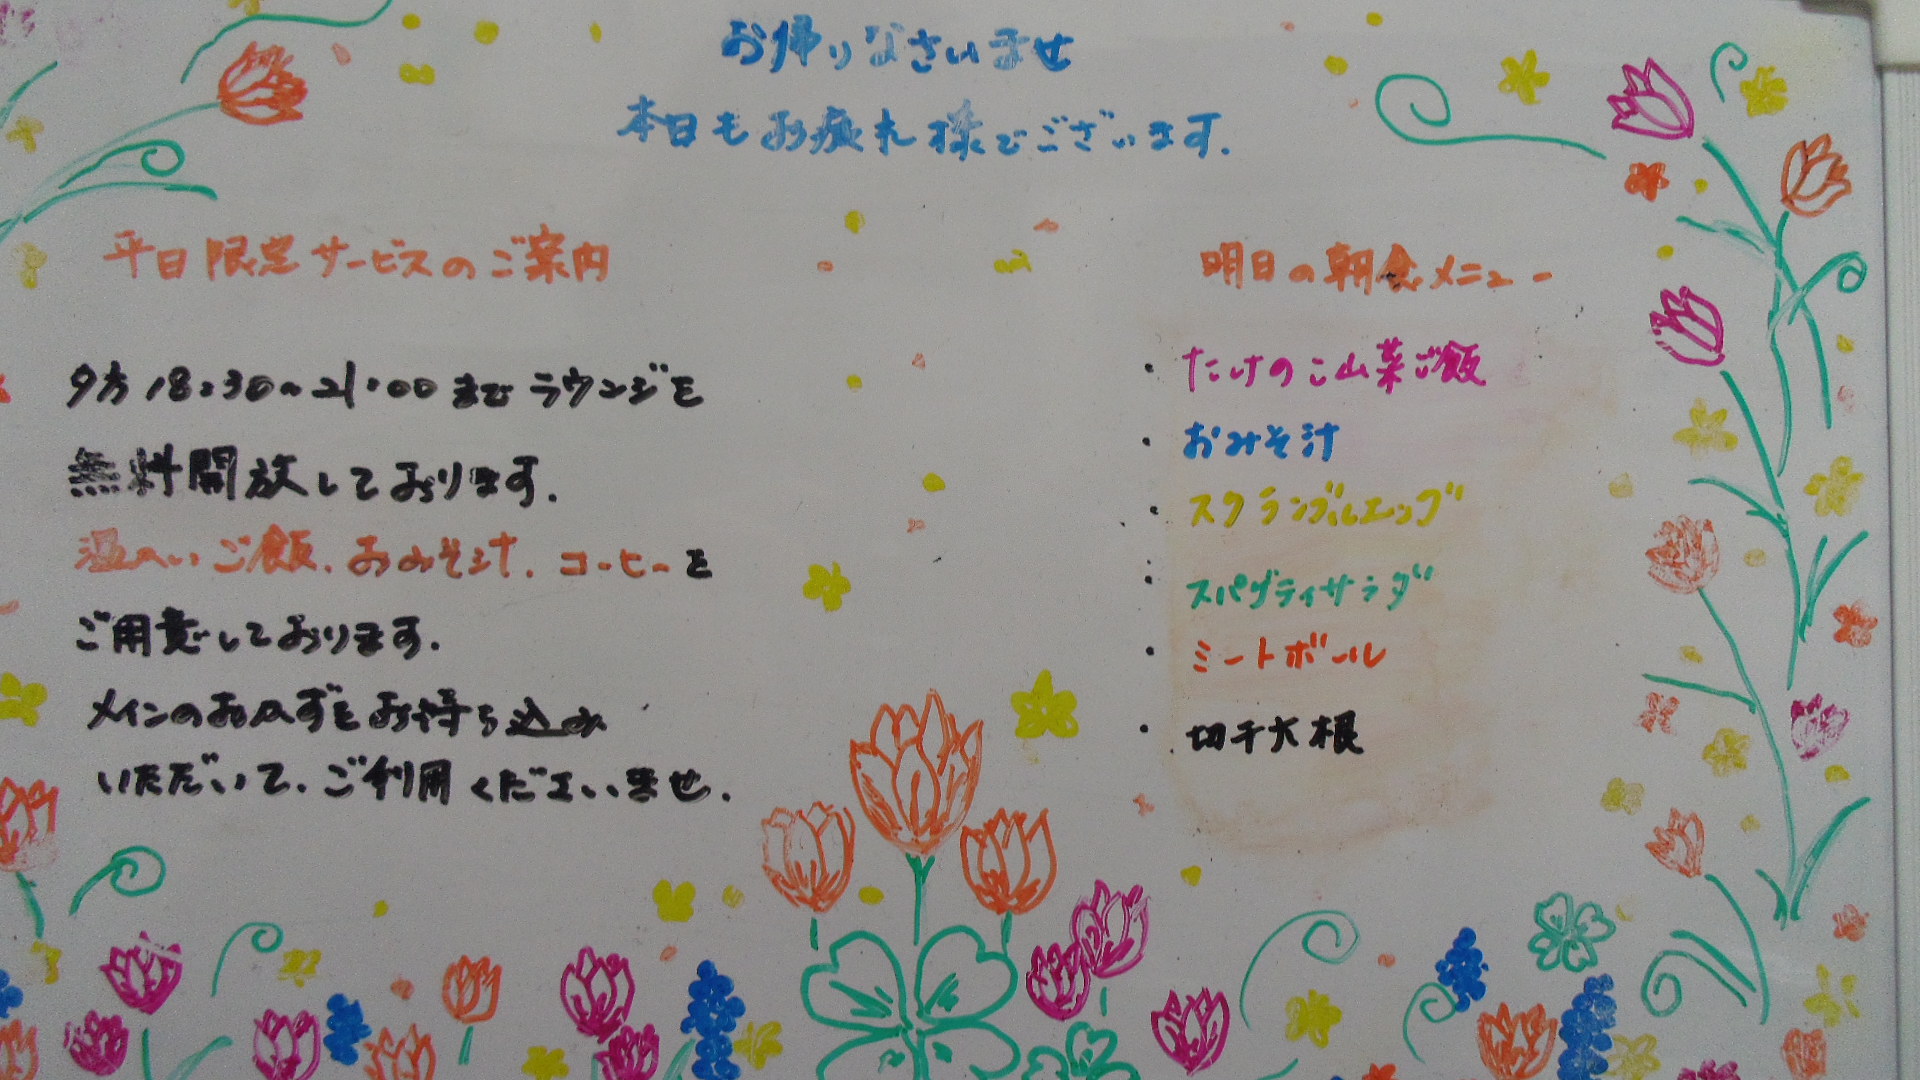 お帰りなさいませ
本日もお疲れ様でございます.
平日限定サービスのご案内
夕方18:30~21:00までラウンジを
無料開放しております.
温かいご飯、おみそ汁、コーヒーを
ご用意しております.
メインのおかずをお持ち込み
いただいて、ご利用くださいませ.
明日の朝食メニュー
・たけのこ山菜ご飯
・おみそ汁
・スクランブルエッグ
・スパゲティサラダ
・ミートボール
・切干大根